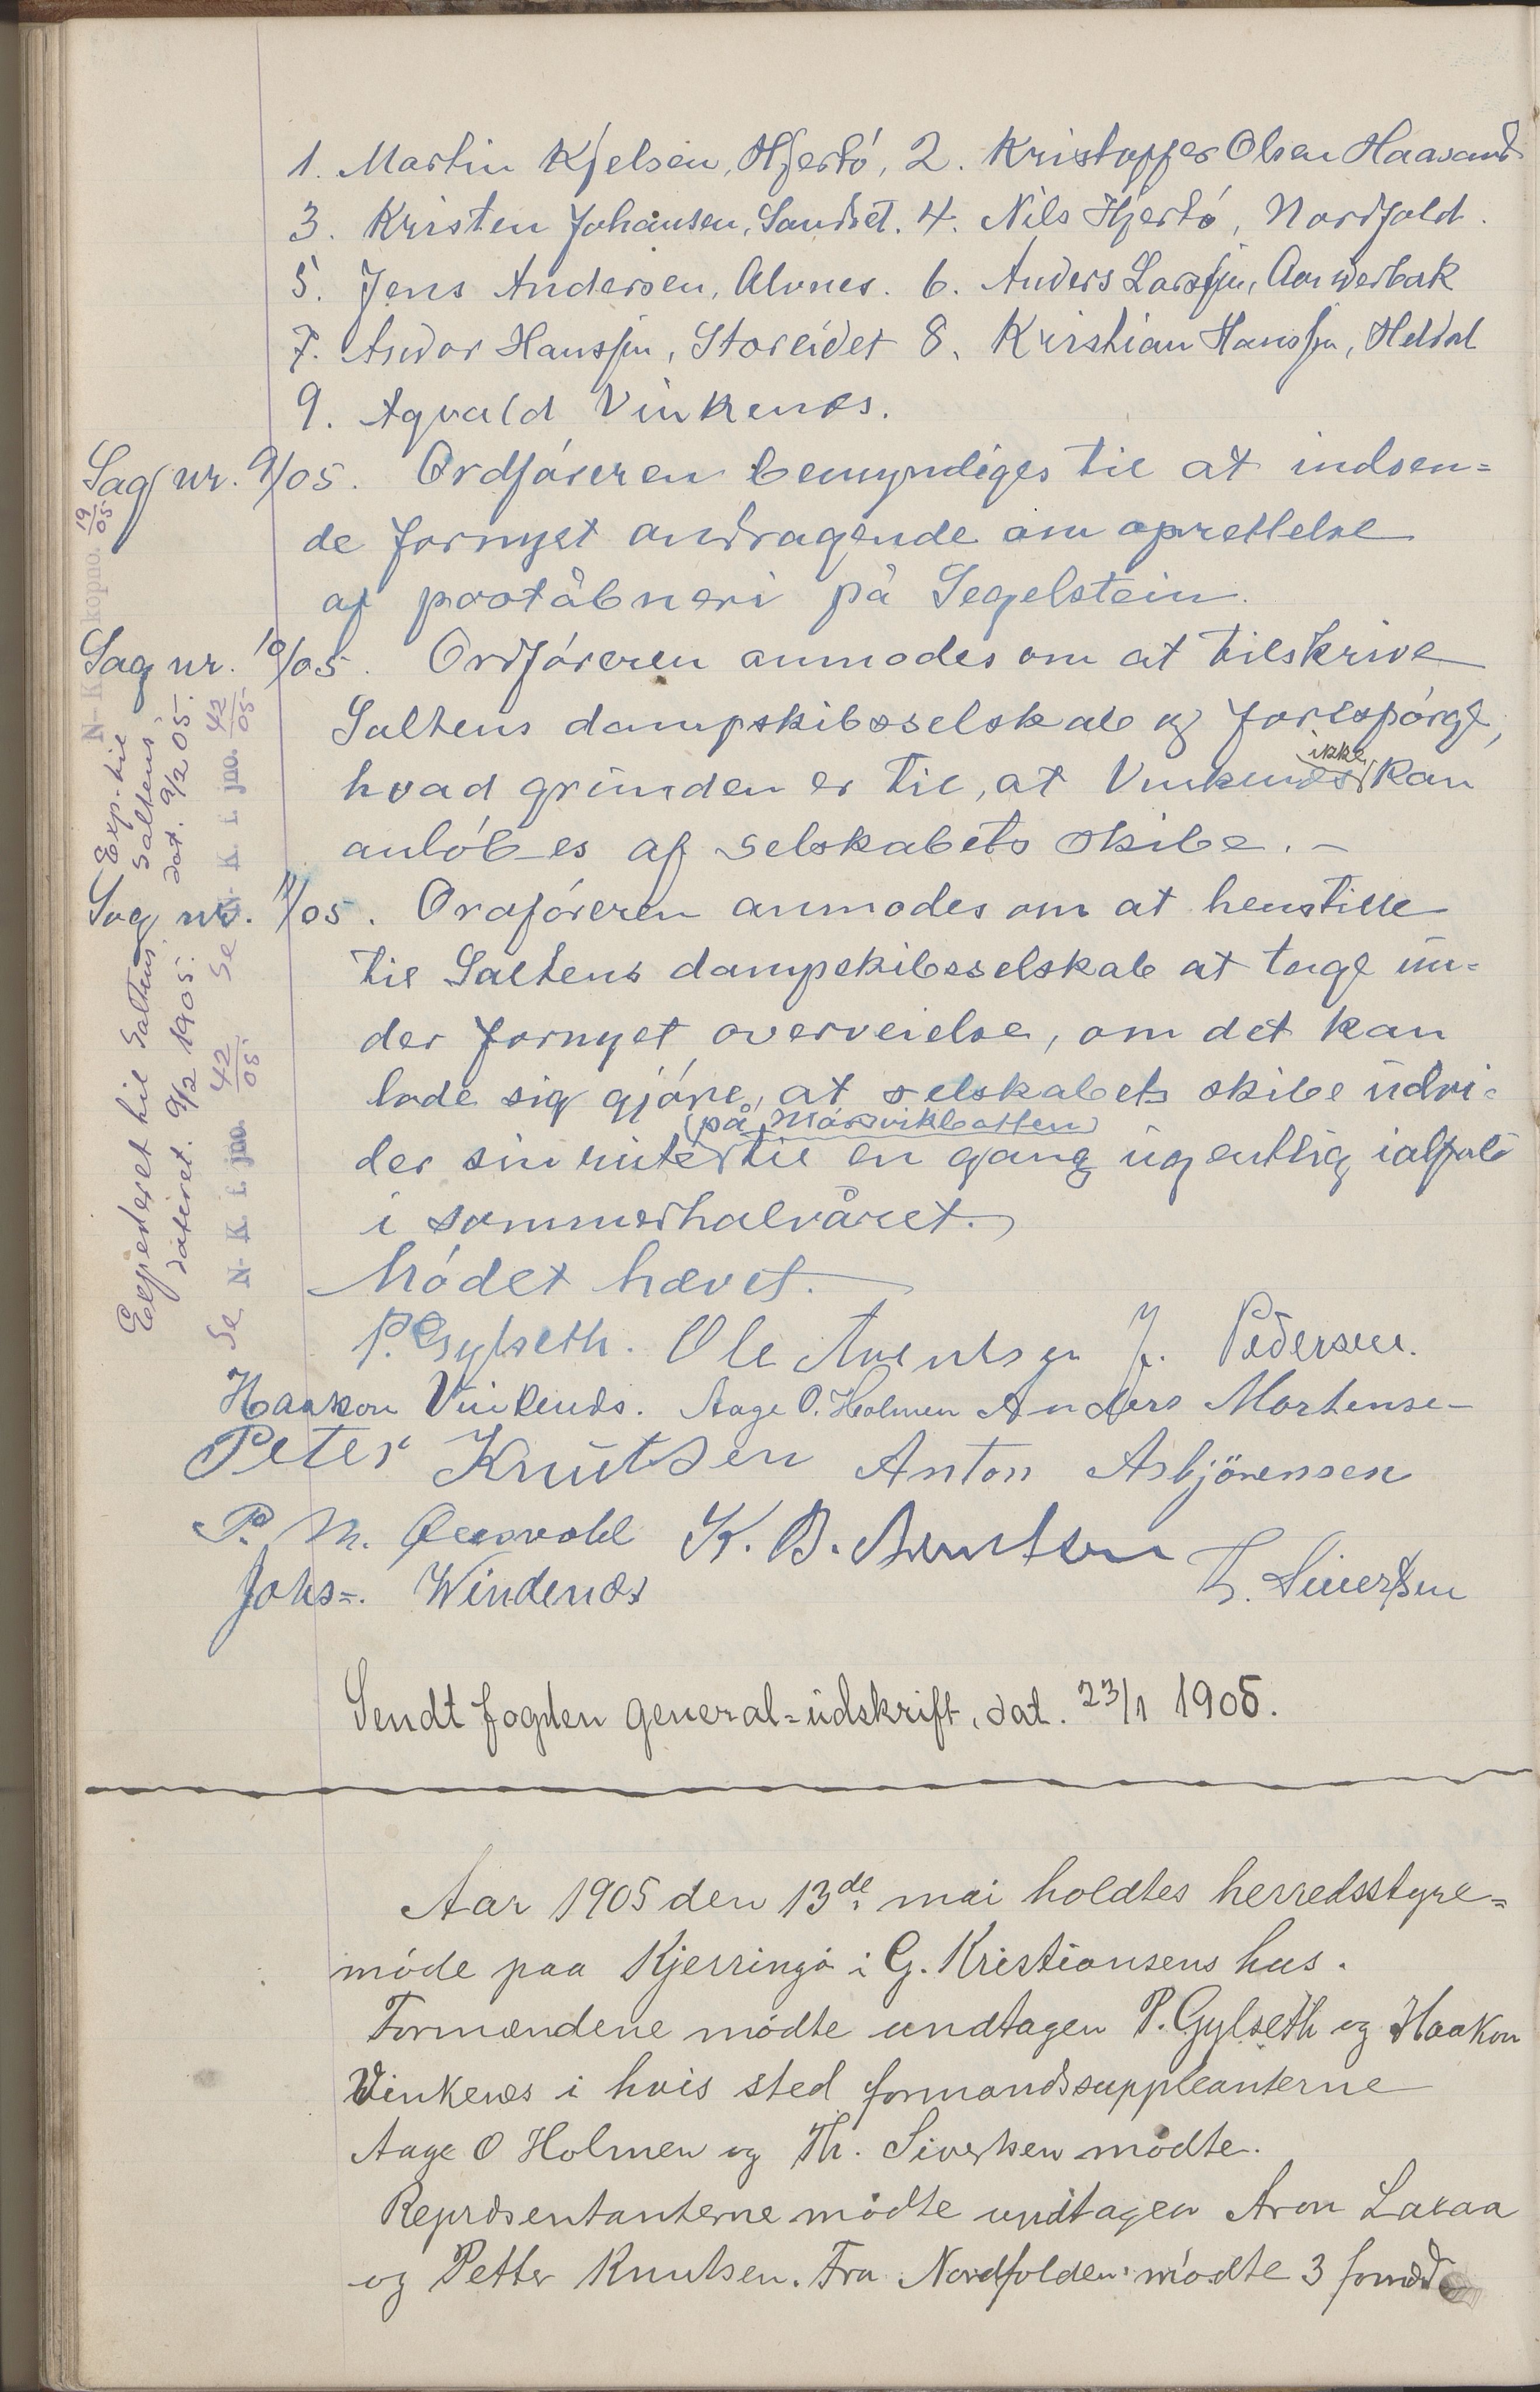 1. Martin Kjelsen, Hjertø, 2. Kristoffer Olsen Haasand
3. Kristen Johansen, Sandset. 4. Nils Hjertø, Nordfold.
5. Jens Andersen, Alvnes. 6. Anders Larssen,
7. Andor Hanssen, Storeidet 8. Kristian Hanssen, Heldal
9. Agvald Vinkenes.
Sag nr. 9/05. Ordføreren bemyndiges til at indsen=
de fornyet andragende om oprettelse
af postàbneri på Segelstein.
Sag nr. 10/05. Ordføreren anmodes om at tilskrive
Saltens dampskibsselskab og forespørge,
hvad grunden er til, at Vinkenes ikke kan
anløbes af selskabets skibe. –
Sag nr. 11/05. Ordføreren anmodes om at henstille
til Saltens dampskibsselskab at tage un-
der fornyet overveielse, om det kan
lade sig gjøre, at selskabets skibe udvi-
(på Mørsvikbotten)
der sin rute til en gang ugentlig ialfald
i sommerhalvåret.
Mødet hævet.
P. Gylseth. Ole Arentsen J. Pedersen.
Haakon Vinkenes. Aage O. Holmen Anders Mortense-
Peter Knutsen Anton Asbjörensen
P. M. K. B. Arentsen
Johs=. Windenæs Th. Siversen
Sendt fogden general=udskrift, dat. 23/1 1905.
Aar 1905 den 13de mai holdtes herredsstyre=
møde paa Kjerringø i G. Kristiansens hus.
Formændene mødte undtagen P. Gylseth og Haakon
Vinkenes i hvis sted formandssuppleanterne
Aage O Holmen og Th. Sivertsen mødte.
Repræsentanterne mødte undtagen Aron Laxaa
og Petter Knutsen. Fra Nordfolden mødte 3
N- K kopno. 19/05
Exp. til
Saltens
dat. 9/2 05.
Se N- K i jno. 42/05
Expederet til Saltens
dateret. 9/2 1905.
Se N- K i jno. 42/05.